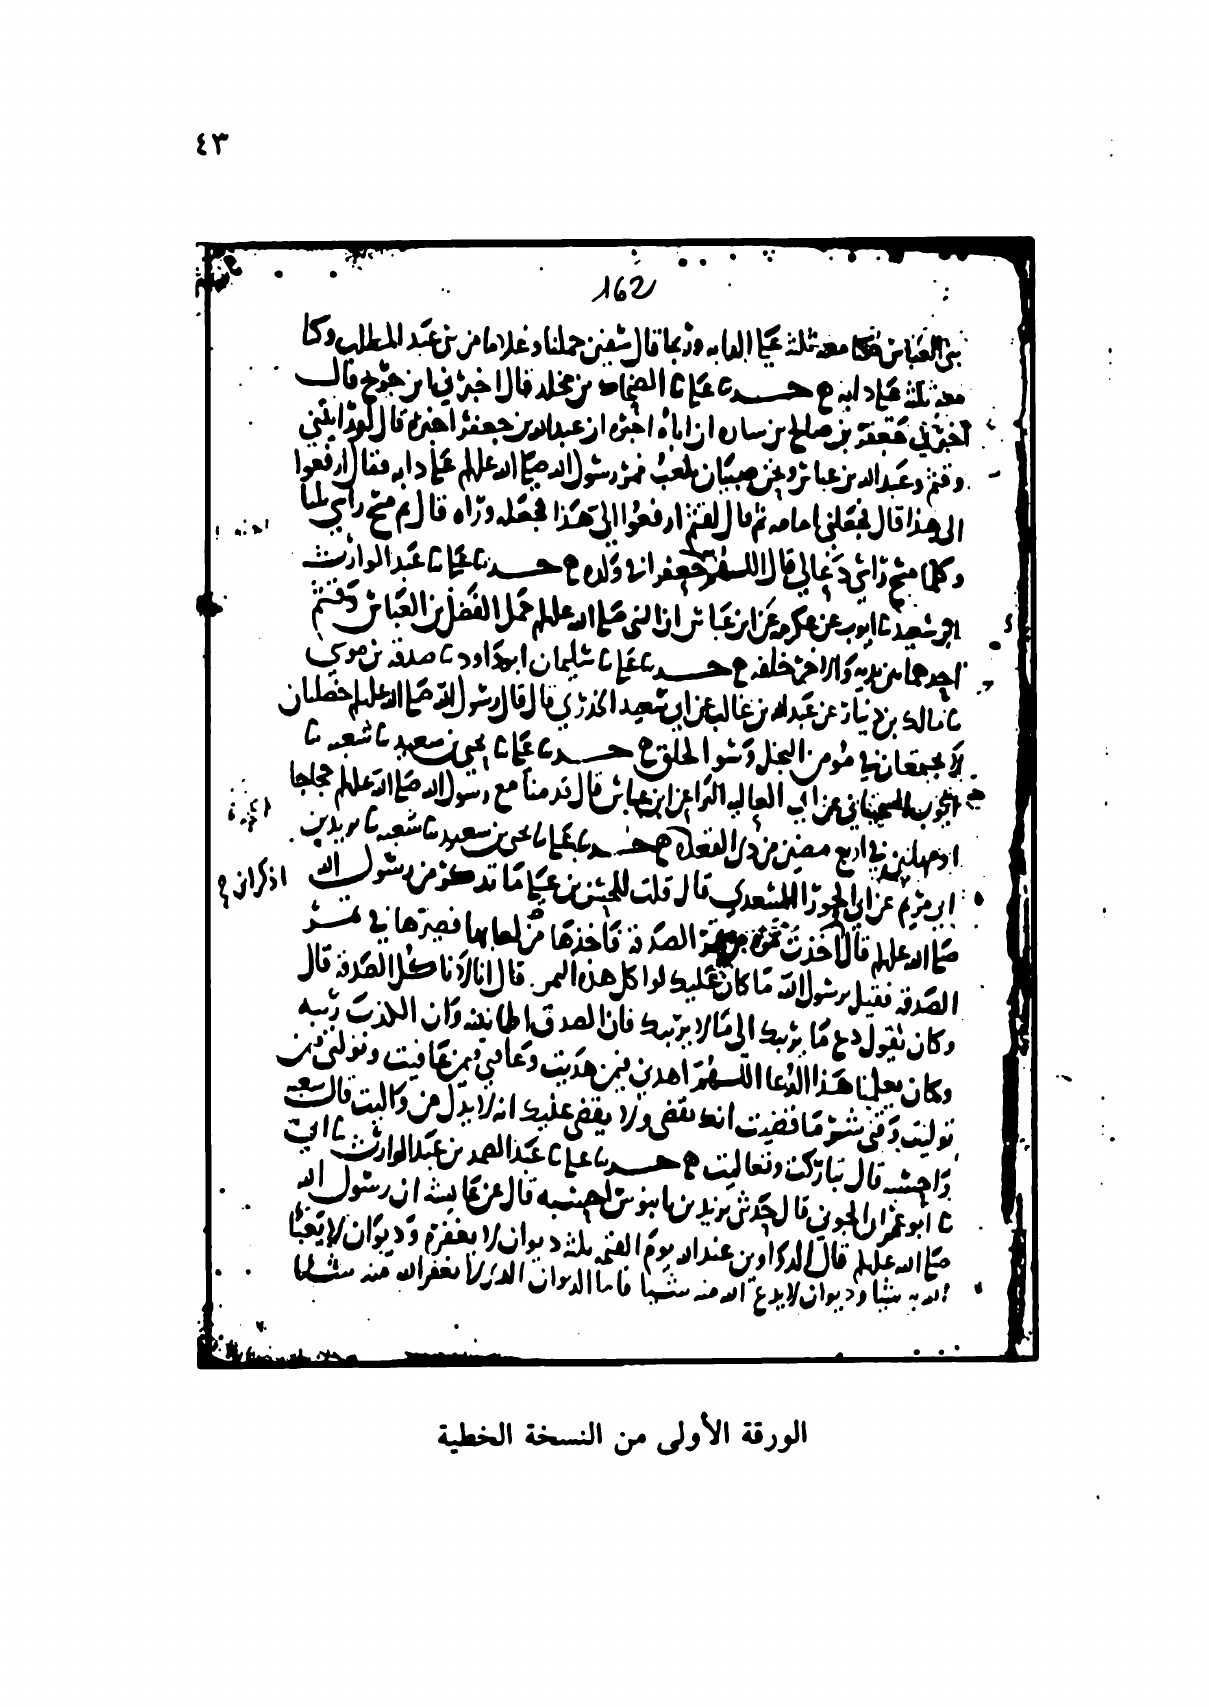 ٤٣
162
بني العباس معه ثلثه علي الدابه وربما قال سفين حملنا وغلاما من بني عبد المطلب وكا
معه ثلثه علي دابه ح حدثنا علي نا الضحاك بن مخلد قال اخبرني ابن جريج قال
اخبرني جعفر بن خالد بن ساره ان اباه اخبره ان عبد الله بن جعفر اخبره قال لو رايتني
وقثم وعبد الله بن عباس ونحن صبيان نلعب فمر رسول الله صلى الله عليه علي دابه فقال ارفعوا
الي هذا قال فجعلني امامه ثم قال لقثم ارفعوا الي هذا فجعله وراه قال ثم مسح راسي ثلثا
وكلما مسح راسي دعا لي قال اللهم جعفرا في ولده ح حدثنا علي نا عبد الوارث
ابن سعيد نا ايوب عن عكرمه عن ابن عباس ان النبي صلى الله عليه حمل الفضل بن العباس وقثم
احدهما بين يديه والاخر خلفه ح حدثنا علي نا سليمان ابو داود نا صدقه بن موسي
نا مالك بن دينار عن عبد الله بن غالب عن ابي سعيد الخدري قال قال رسول الله صلى الله عليه خصلتان
لا يجتمعان في مؤمن البخل وسوء الخلق ح حدثنا علي نا يحيي بن سعيد نا شعبه نا
ايوب السختياني عن ابي العاليه البراء عن ابن عباس قال قدمنا مع رسول الله صلى الله عليه حجاجا
اربع مضين من ذي القعده ح حدثنا علي نا يحيي بن سعيد نا شعبه نا بريد بن
ابي مريم عن ابي الحورا السعدي قال قلت للحسن بن علي ما تذكر من رسول الله
اذكر اني
صلى الله عليه قال اخذت تمره من تمر الصدقه فاخذها من لعابها فصيرها في تمر
الصدقه فقيل يرسول الله ما كان عليك لو اكل هذه التمر قال انا لا ناكل الصدقه قال
وكان يقول دع ما يريبك الي ما لا يريبك فان الصدق طمانينه وان الكذب ريبه
وكان يعلمنا هذا الدعا اللهم اهدني فيمن هديت وعافني فيمن عافيت وتولني فيمن
توليت وقني شر ما قضيت انك تقضي ولا يقضي عليك انه لا يذل من واليت قال شعبه
واحسبه قال تباركت وتعاليت ح حدثنا علي نا عبد الصمد بن عبد الوارث نا ابي
نا ابو عمران الجوني قال حدثني يزيد بن بابنوس احسبه قال عن عايشه ان رسول الله
صلى الله عليه قال الدواوين عند الله يوم القيمه ثلثه ديوان لا يغفره وديوان لا يعبا
الله به شيا وديوان لا يدع الله منه شيا فاما الديوان الذي لا يغفر الله منه شيا
الورقة الأولى من النسخة الخطية